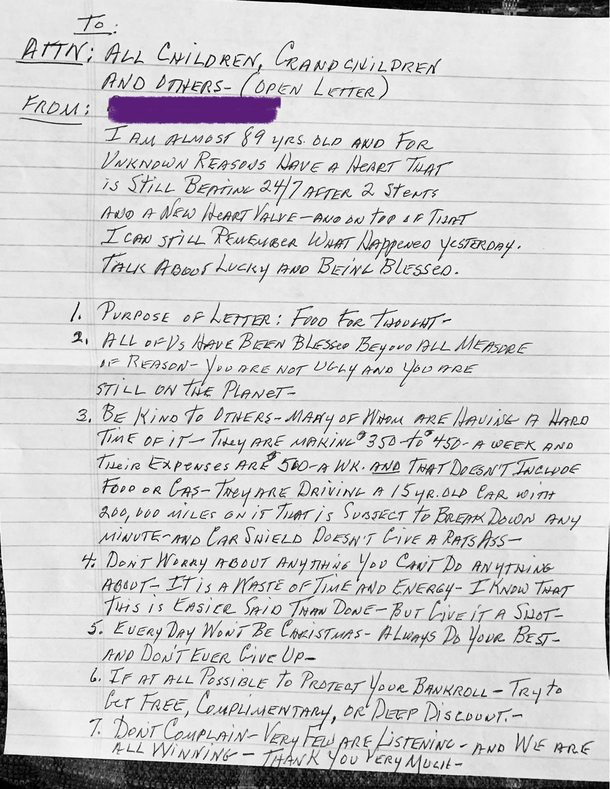 To:
ATTN: ALL CHILDREN, GRANDCHILDREN
AND OTHERS- (OPEN LETTER)
FROM:
I AM ALMOST 89 YRS. OLD AND FOR
UNKNOWN REASONS HAVE A HEART THAT
is STILL BEATING 24/7 AFTER 2 STENTS
AND A NEW HEART VALVE-AND ON TOP OF THAT
I CAN STILL REMEMBER WHAT HAPPENED YESTERDAY.
TALK ABOUT LUCKY AND BEING BLESSED.
1. PURPOSE OF LETTER: FOOD FOR THOUGHT-
2. ALL OF US HAVE BEEN BLESSED BEYOND ALL MEASURE
OF REASON-YOU ARE NOT UGLY AND YOU ARE
STILL ON THE PLANET-
3. BE KIND TO OTHERS-MANY OF WHOM ARE HAVING A HARD
TIME OF IT-THEY ARE MAKING $350-to $450-A WEEK AND
THEIR EXPENSES ARE $500-A WK. AND THAT DOESN'T INCLUDE
FOOD OR GAS-THEY ARE DRIVING A 15 YR. OLD CAR WITH
200,000 MILES ON IT THAT is SUBJECT TO BREAK DOWN ANY
MINUTE-AND CAR SHIELD DOESN'T GIVE A RATS ASS-
4. DON'T WORRY ABOUT ANYTHING YOU CAN'T DO ANYTHING
ABOUT-IT IS A WASTE OF TIME AND ENERGY-I KNOW THAT
THIS IS EASIER SAID THAN DONE-BUT GIVE IT A SHOT-
5. EVERY DAY WON'T BE CHRISTMAS-ALWAYS DO YOUR BEST-
AND DON'T EVER GIVE UP-
6. IF AT ALL POSSIBLE TO PROTECT YOUR BANKROLL-TRY to
GET FREE, COMPLIMENTARY, OR DEEP DISCOUNT.-
7. DON'T COMPLAIN-VERY FEW ARE LISTENING-AND WE ARE
ALL WINNING-THANK YOU VERY MUCH-